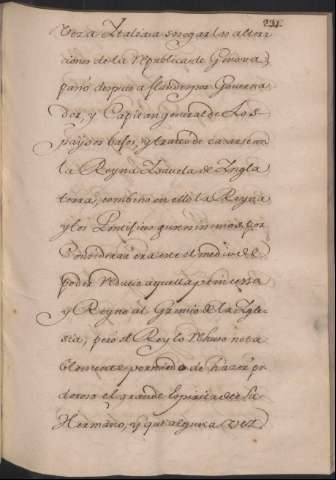 231.
Vez a Italia a sosegar las altera
ciones de la Republica de Genova,
paso despues a flandes por Governa
dor, y Capitan general de los
payses bajos, y trato de casarse con
la Reyna Isavela de Ingla
terra, combino en ello la Reyna
y los Pontifices que
Considerar era este el medio de
poder reducir aquella princessa
y Reyno al Gremio de la Igle
sia, pero el Rey lo rehuso nota
blemente por miedo de hazer po
deroso el grande espiritu de su
Hermano, y que alguna vez